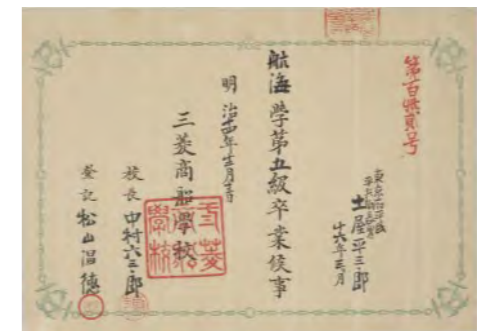 第百卅貳号
東京
平民
土屋平三郎
十六年三月
航海學第五級卒業候事
明治十四年
三菱商船學校
校長 中村六三郎
登記 松山温徳
三菱商船學校